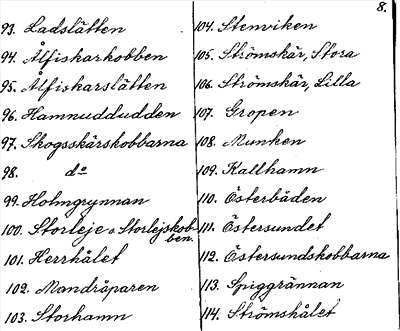 8.
93. Ladslätten
94. Ålfiskarkobben
95. Ålfiskarslätten
96. Hamnuddudden
97. Skogsskärskobbarna
98. do
99. Holmgrynnan
100. Storleje o Storlejskob-
ben.
101. Herrhålet
102. Mandråparen
103. Storhamn
104. Stenviken
105. Strömskär, Stora
106. Strömskär, Lilla
107. Gropen
108. Munken
109. Kallhamn
110. Österbåden
111. Östersundet
112. Östersundskobbarna
113. Spiggrännan
114. Strömshålet